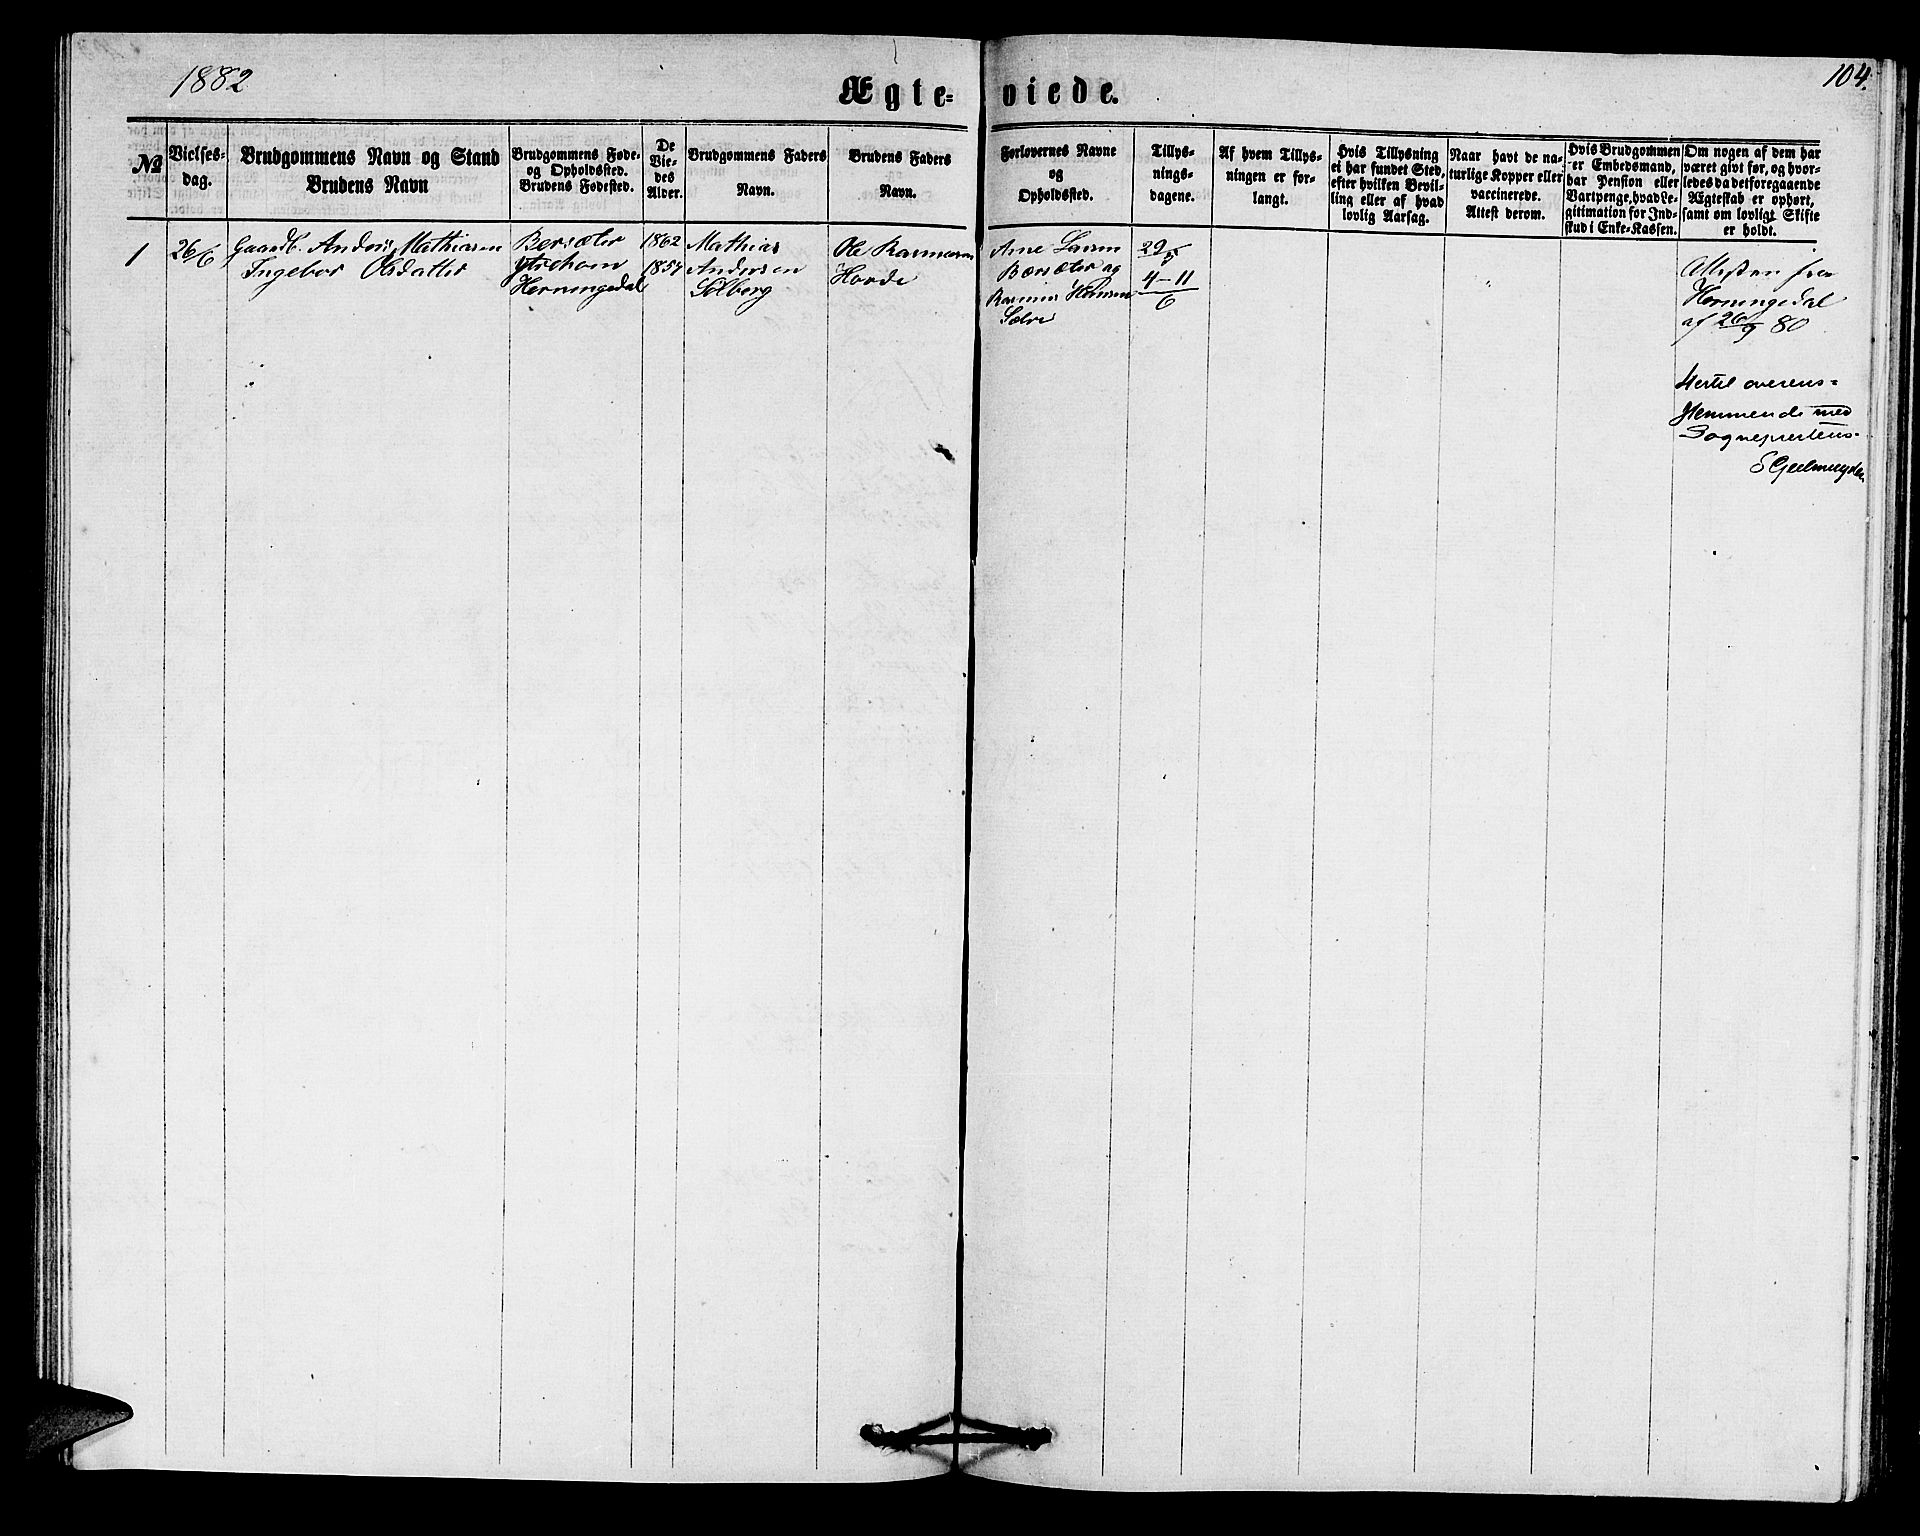 1882
Ægte- viede.
104.
№
Vielses-
dag.
Brudgommens Navn og Stand
Brudens Navn
Brudgommens Føde-
og Opholdssted.
Brudens Fødested.
De
Vie-
des
Alder.
Brudgommens Faders
Navn.
Brudens Faders
Navn.
Forlovernes Navne
og
Opholdssted.
Tillys-
nings-
dagene.
Af hvem Tillys-
ningen er for-
langt.
Hvis Tillysning
ei har fundet Sted,
efter hvilken Bevil-
ling eller af hvad
lovlig Aarsag.
Naar havt de na-
turlige Kopper eller
vaccinerede.
Attest derom.
Hvis Brudgommen
er Embedsmand,
har Pension eller
Vartpenge, hvad Le-
gitimation for Ind-
skud i Enke-Kassen.
Om nogen af dem har
været givt før, og hvor-
ledes da det foregaaende
Ægteskab er ophørt,
samt om lovligt Skifte
er holdt.
1
26/6
Gaardb. Anders Mathiasen
Ingebor Olsdatter
Bersæter
ytrehorn
Horningedal
1862
1857
Mathias
Andersen
Solberg
Ole Rasmusen
Horde
Arne Larsen
Bærsæter og
Rasmus Hansen
29/5
4-11
6
Attesten fra
Horningedal
af 26/9 80
Hertil overens=
stemmende med
Sogneprestens
S Geelmuyden